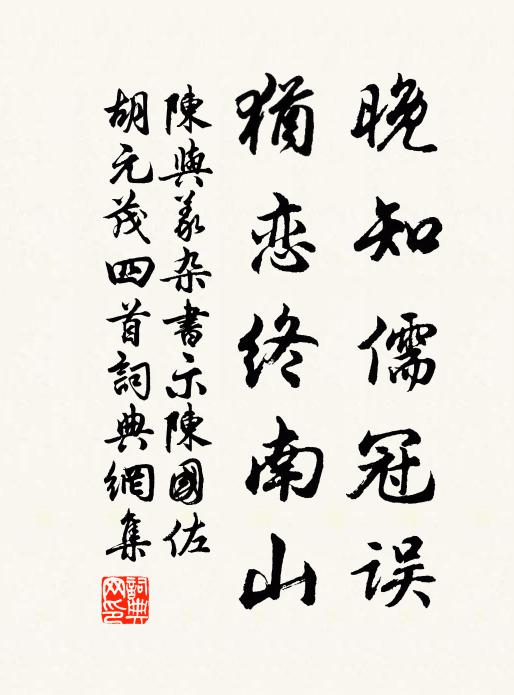 晚知儒冠误
猶恋终南山
陳與義杂書示陳國佐
胡元茂四首詞典網集
詞典網印